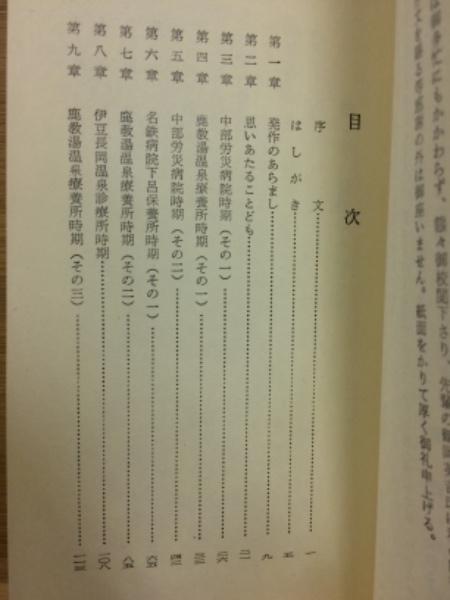 は御多忙にもかかわらず、種々御校閲下さり、
の外は御座いません。紙面をかりて厚く御礼申上げる。
目次
序文 一
はしがき 五
第一章 発作のあらまし 九
第二章 思いあたることども 二一
第三章 中部労災病院時期（その一） 二六
第四章 鹿教湯温泉療養所時期（その一） 三三
第五章 中部労災病院時期（その二） 四三
第六章 名鉄病院下呂保養所時期（その一） 六五
第七章 鹿教湯温泉療養所時期（その二） 八五
第八章 伊豆長岡温泉診療所時期 一〇八
第九章 鹿教湯温泉療養所時期（その三） 一一三